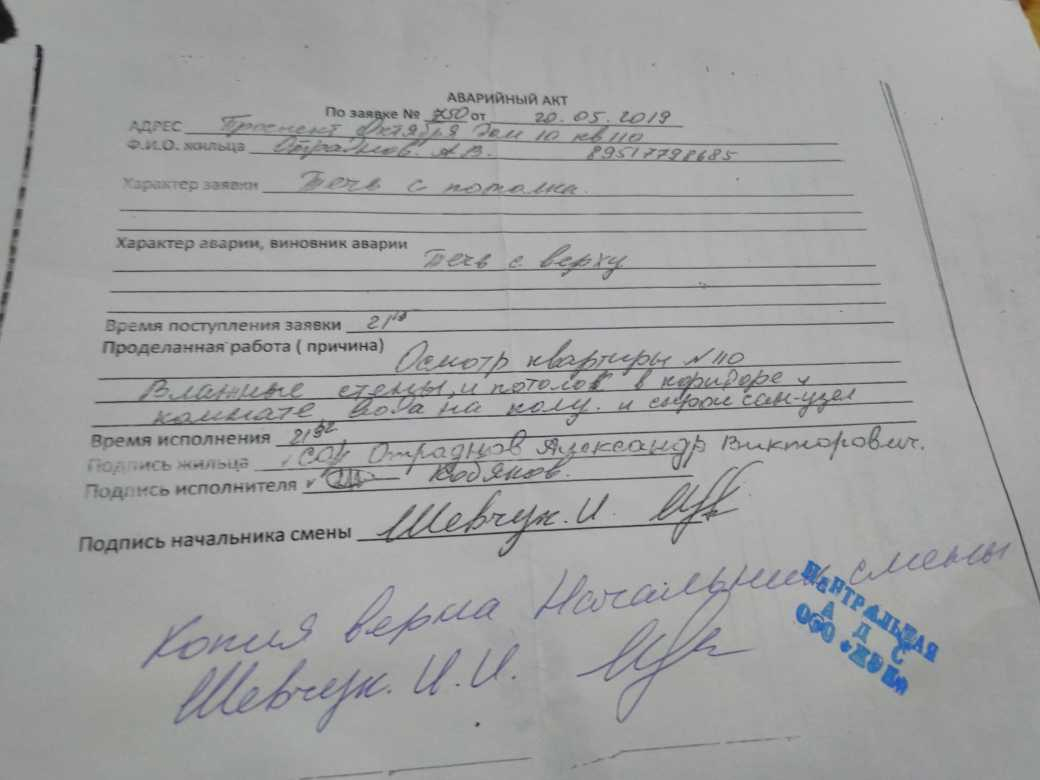 АВАРИЙНЫЙ АКТ
По заявке № 750 от 20.05.2019
АДРЕС Проспект Октября Дом 10 кв 110
Ф.И.О. жильца Отраднов. А.В. 89517798685
Характер заявки Течь с потолка.
Характер аварии, виновник аварии
Течь с верху
Время поступления заявки 21
Проделанная работа ( причина) Осмотр квартиры N 110
Влажные стены, и потолок в коридоре и
комнате, вода на полу. и сан-узел
Время исполнения 21
Подпись жильца Отраднов Александр Викторович.
Подпись исполнителя Кобяков.
Подпись начальника смены Шевчук. И.
Копия верна Начальник смены
Шевчук. И.И.
ЦЕНТРАЛЬНАЯ
А Д С
ООО